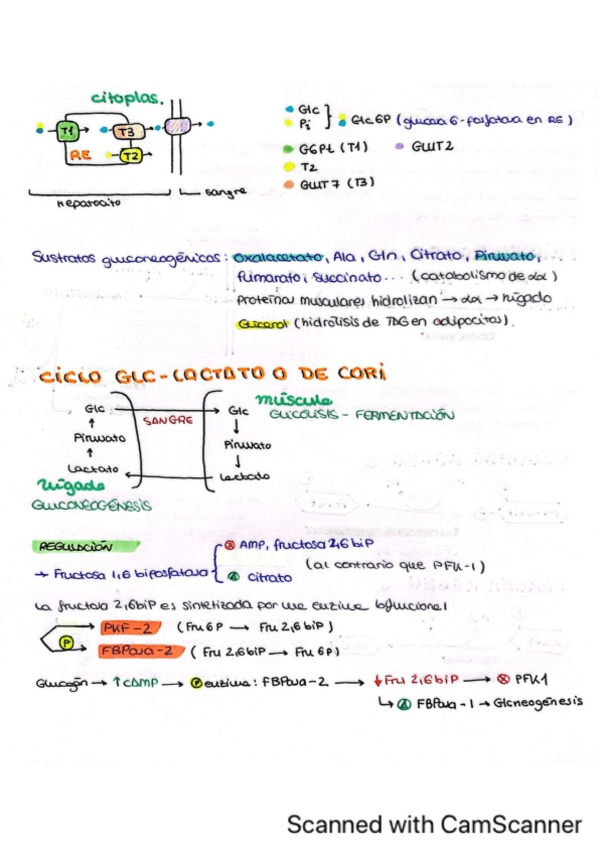 citoplas.
T1
T3
RE
T2
Hepatocito
sangre
Glc
Pi
Glc6P (glucosa 6-fosfatasa en RE)
G6Pt (T1)
GLUT2
T2
GLUT7 (T3)
Sustratos gluconeogénicos: Oxalacetato, Ala, Gln, Citrato, Piruvato,
Fumarato, Succinato... (catabolismo de aa)
Proteínas musculares hidrolizan → aa → hígado
Glicerol (hidrólisis de TAG en adipocitos).
CICLO GLC-LACTATO O DE CORI
músculo
GLICOLISIS - FERMENTACIÓN
Glc → Glc
SANGRE
↑ ↓
Piruvato Piruvato
↑ ↓
Lactato ← Lactato
Hígado
GLUCONEOGÉNESIS
REGULACIÓN
AMP, fructosa 2,6 biP
→ Fructosa 1,6 bifosfatasa
(al contrario que PFK-1)
Citrato
La fructosa 2,6biP es sintetizada por una enzima bifuncional
PKF-2 (Fru 6P → Fru 2,6 biP)
P
FBPasa-2 (Fru 2,6biP → Fru 6P)
Glucagón → ↑cAMP → P enzima: FBPasa-2 → ↓Fru 2,6biP → PFK1
↳ FBPasa-1 → Glcneogénesis
Scanned with CamScanner